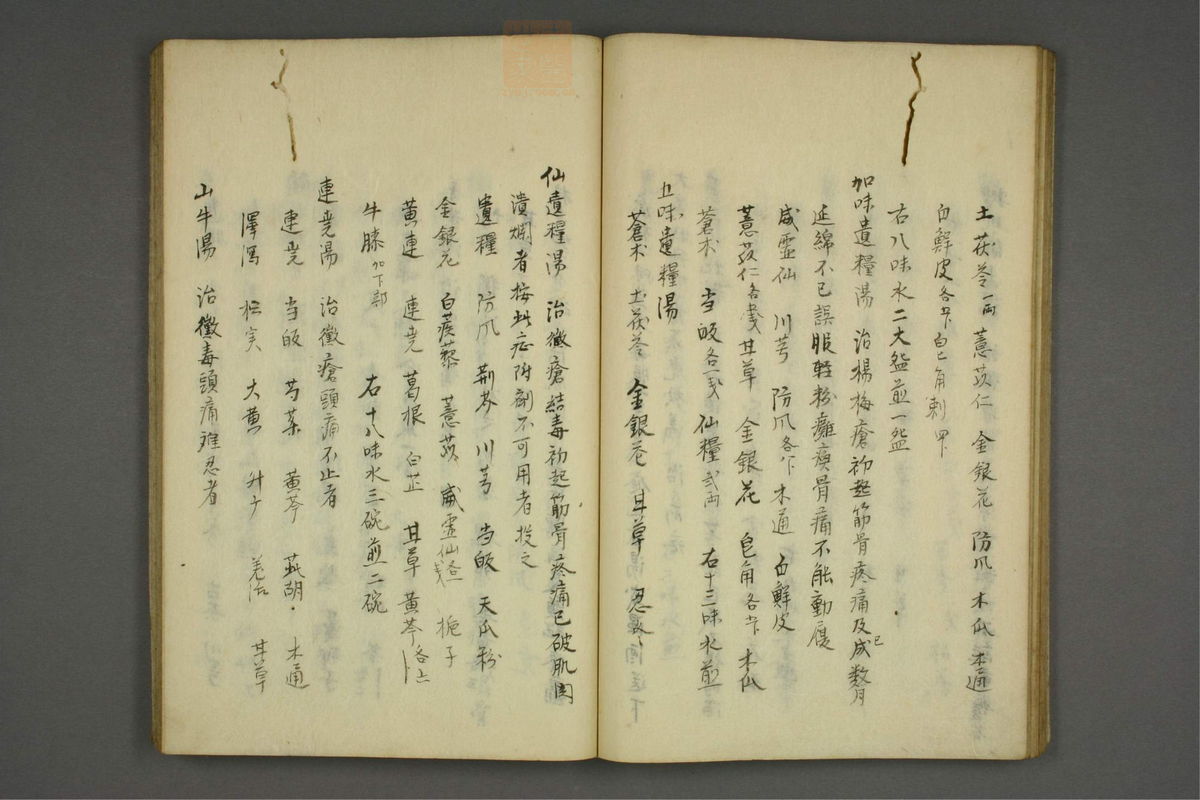 土茯苓一両 薏苡仁 金銀花 防爪 木瓜 木通
白鮮皮各 皀角刺
右八味水二大盌煎一盌
加味遺糧湯 治楊梅瘡初起筋骨疼痛及已成數月
延綿不已誤服輕粉癱瘓骨痛不能動履
威霊仙 川芎 防爪各 木通 白鮮皮
薏苡仁各 甘草 金銀花 皀角各 木瓜
蒼朮 当皈各一戔 仙糧弐両 右十三味水煎
五味遺糧湯
蒼朮 土茯苓 金銀花 甘草 忍冬
仙遺糧湯 治黴瘡結毒初起筋骨疼痛已破肌肉
潰爛者按此症附剤不可用者投之
遺糧 防爪 荊芥 川芎 当皈 天瓜粉
金銀花 白蒺藜 薏苡 威霊仙 梔子
黄連 連尭 葛根 白芷 甘草 黄芩
牛膝加下部 右十八味水三碗煎二碗
連尭湯 治黴瘡頭痛不止者
連尭 当皈 芍薬 黄芩 柴胡 木通
澤瀉 大黄 羌活 甘草
山牛湯 治黴毒頭痛難忍者